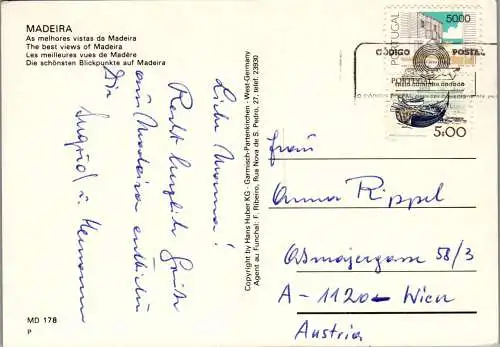 MADEIRA
As melhores vistas da Madeira
The best views of Madeira
Les meilleures vues de Madère
Die schönsten Blickpunkte auf Madeira
Liebe Mama!
Recht herzliche Grüße
aus Madeira
Die
Ingrid u. Hermann
MD 178
P
Copyright by Hans Huber KG · Garmisch-Partenkirchen · West-Germany
Agent au Funchal: F. Ribeiro, Rua Nova de S. Pedro, 27, telef. 23930
PORTUGAL
5000
CÓDIGO POSTAL
PORTUGAL
5.00
Frau
Anna Rippel
Osmajergasse 58/3
A-1120-Wien
Austria